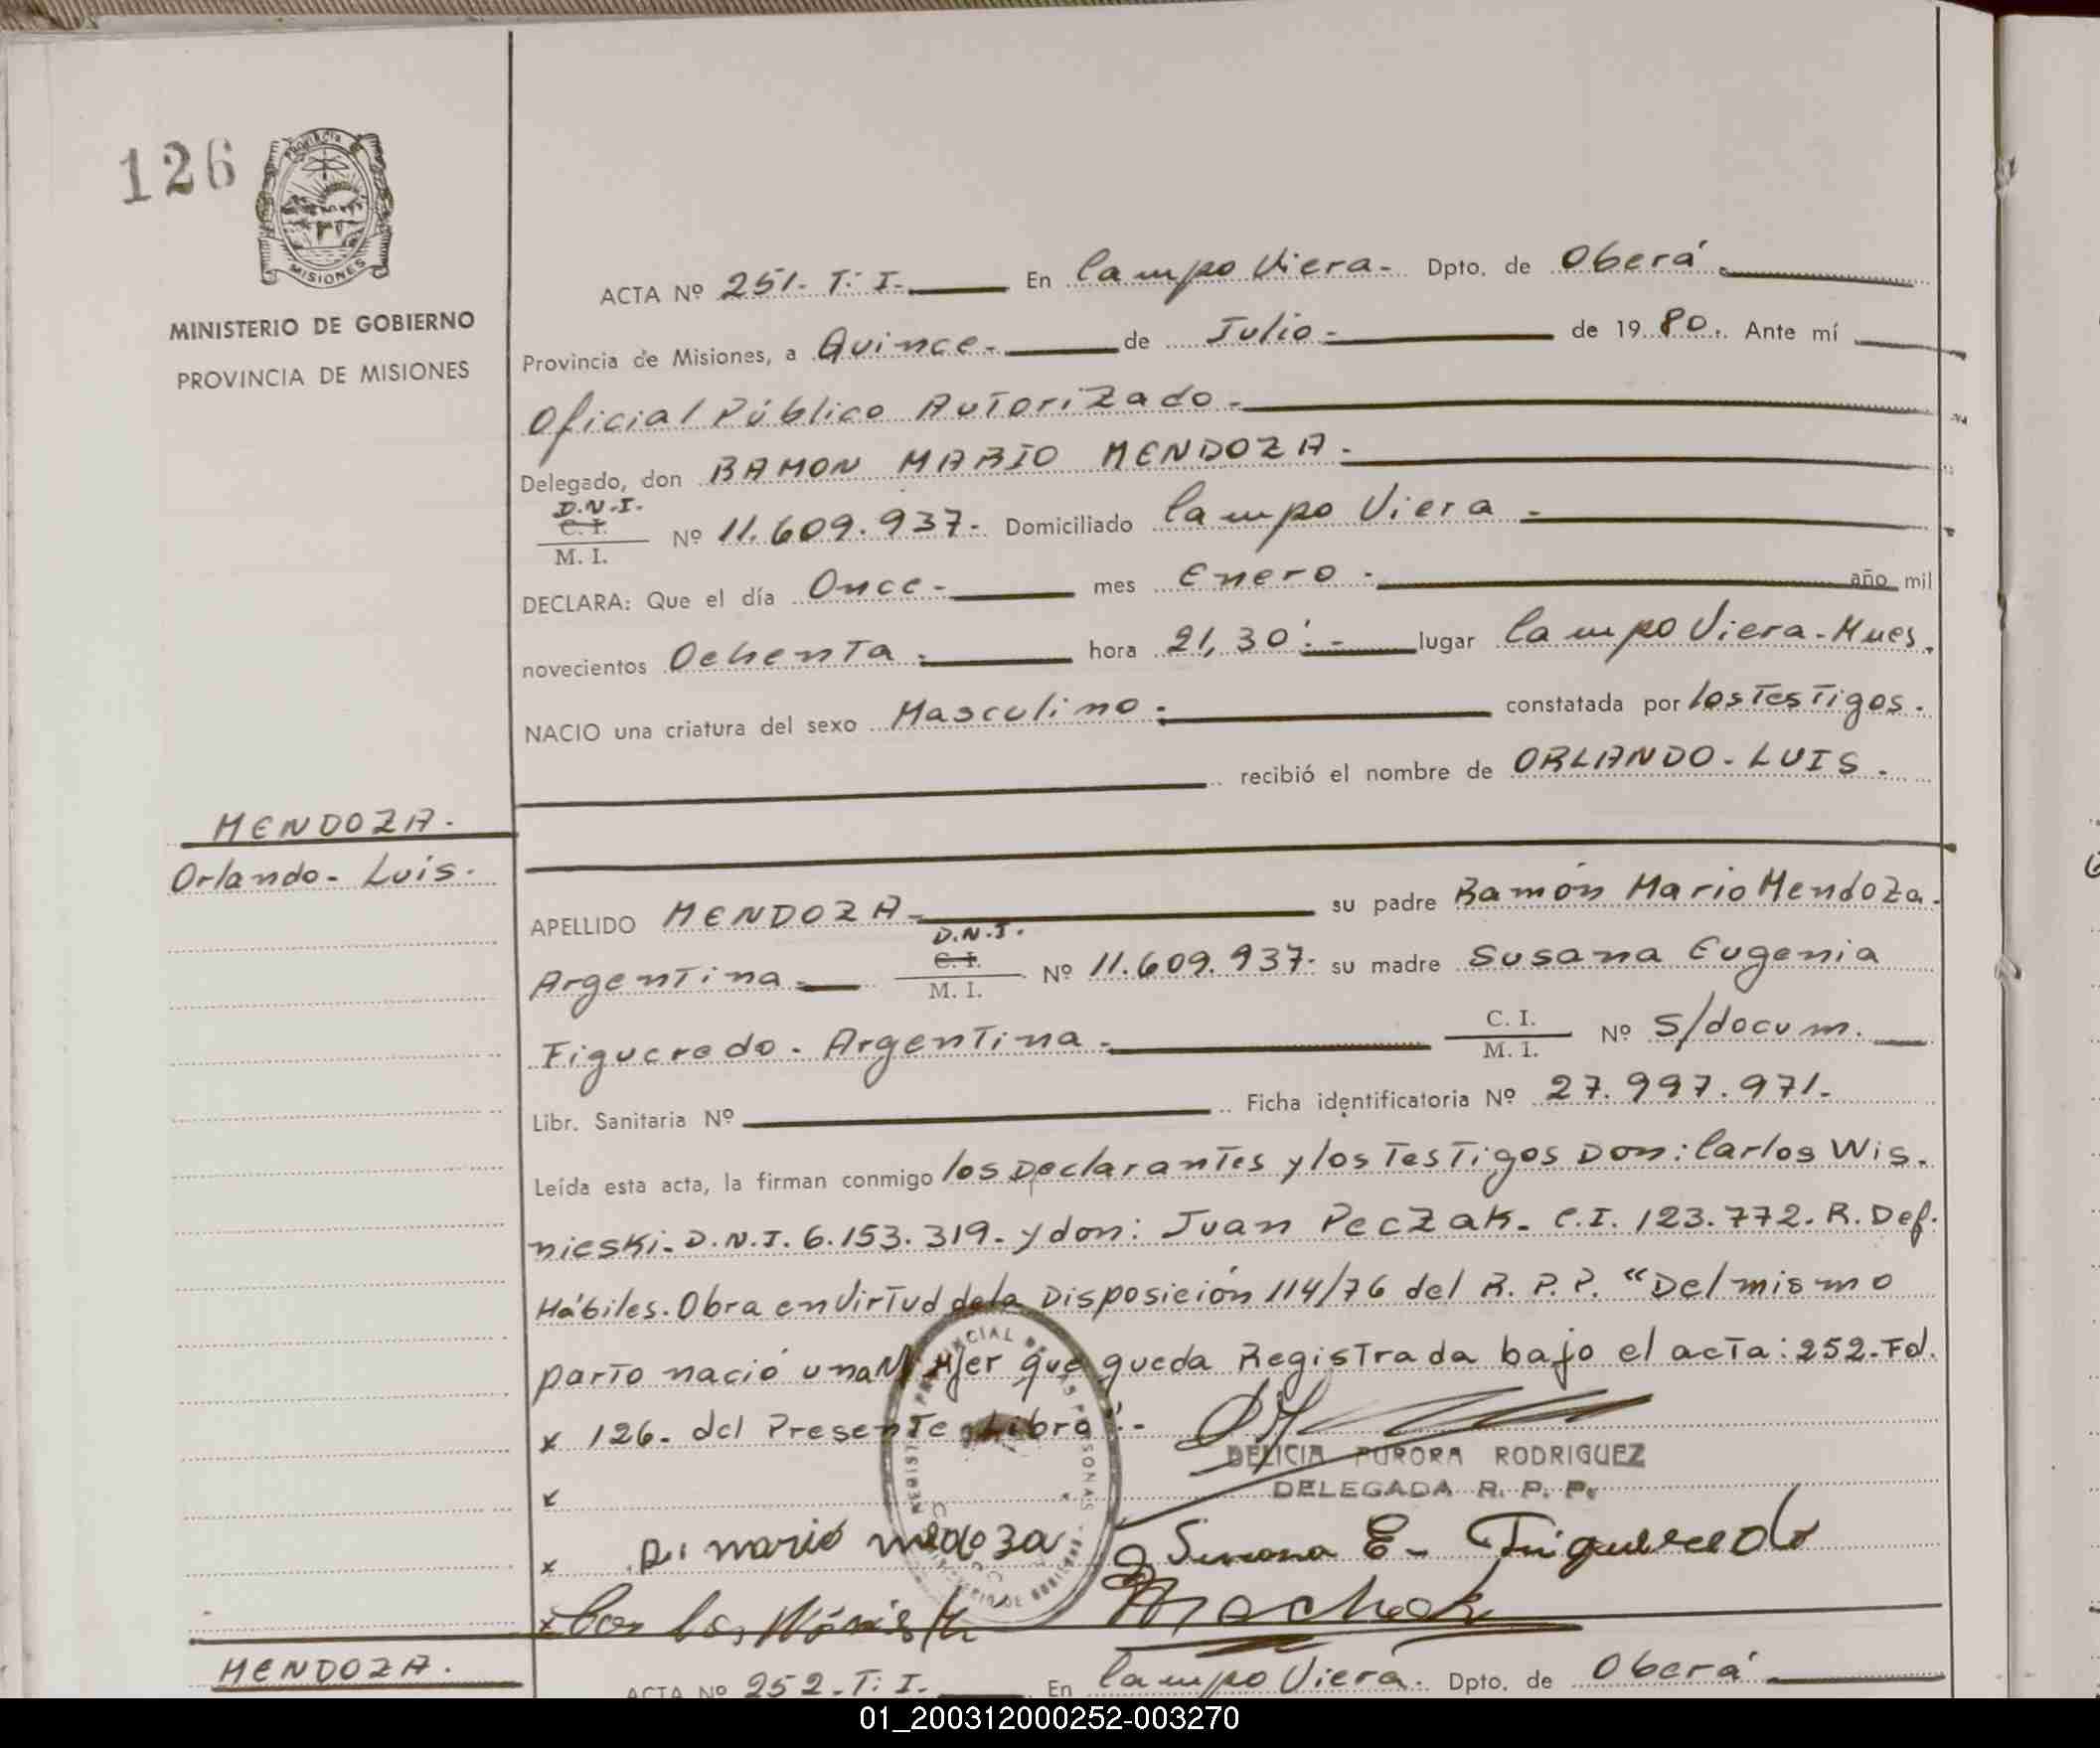 126
PROVINCIA DE
MISIONES
MINISTERIO DE GOBIERNO
PROVINCIA DE MISIONES
ACTA Nº 251- T. I.- En Campo Viera- Dpto. de Oberá.
Provincia de Misiones, a Quince- de Julio- de 1980. Ante mí
Oficial Público Autorizado-
Delegado, don RAMON MARIO MENDOZA.
D.N.I.
C. I.
M. I.
Nº 11.609.937- Domiciliado Campo Viera-
DECLARA: Que el día Once- mes Enero- año mil
novecientos Ochenta- hora 21,30'.- lugar Campo Viera-Mnes.
NACIO una criatura del sexo Masculino. constatada por los Testigos.
recibió el nombre de ORLANDO-LUIS.
MENDOZA.
Orlando- Luis.
APELLIDO MENDOZA- su padre Ramón Mario Mendoza.
D.N.I.
Argentina- C. I.
M. I.
Nº 11.609.937- su madre Susana Eugenia
Figueredo. Argentina. C. I.
M. I.
Nº S/docum.
Libr. Sanitaria Nº Ficha identificatoria Nº 27.997.971-
Leída esta acta, la firman conmigo los Declarantes y los Testigos Don: Carlos Wis-
nieski- D.N.I. 6.153.319- y don: Juan Peczak- C.I. 123.772. R. Def.
Hábiles. Obra en virtud de la Disposición 114/76 del R. P. P. "Del mismo
parto nació una Mujer que queda Registrada bajo el acta: 252-Fº.
x 126- del Presente Libro".-
DELICIA AURORA RODRIGUEZ
DELEGADA R. P. P.
R. mario medoza Susana E- Figueredo
MENDOZA.
ACTA Nº 252-T. I.- En Campo Viera. Dpto. de Oberá
01_200312000252-003270